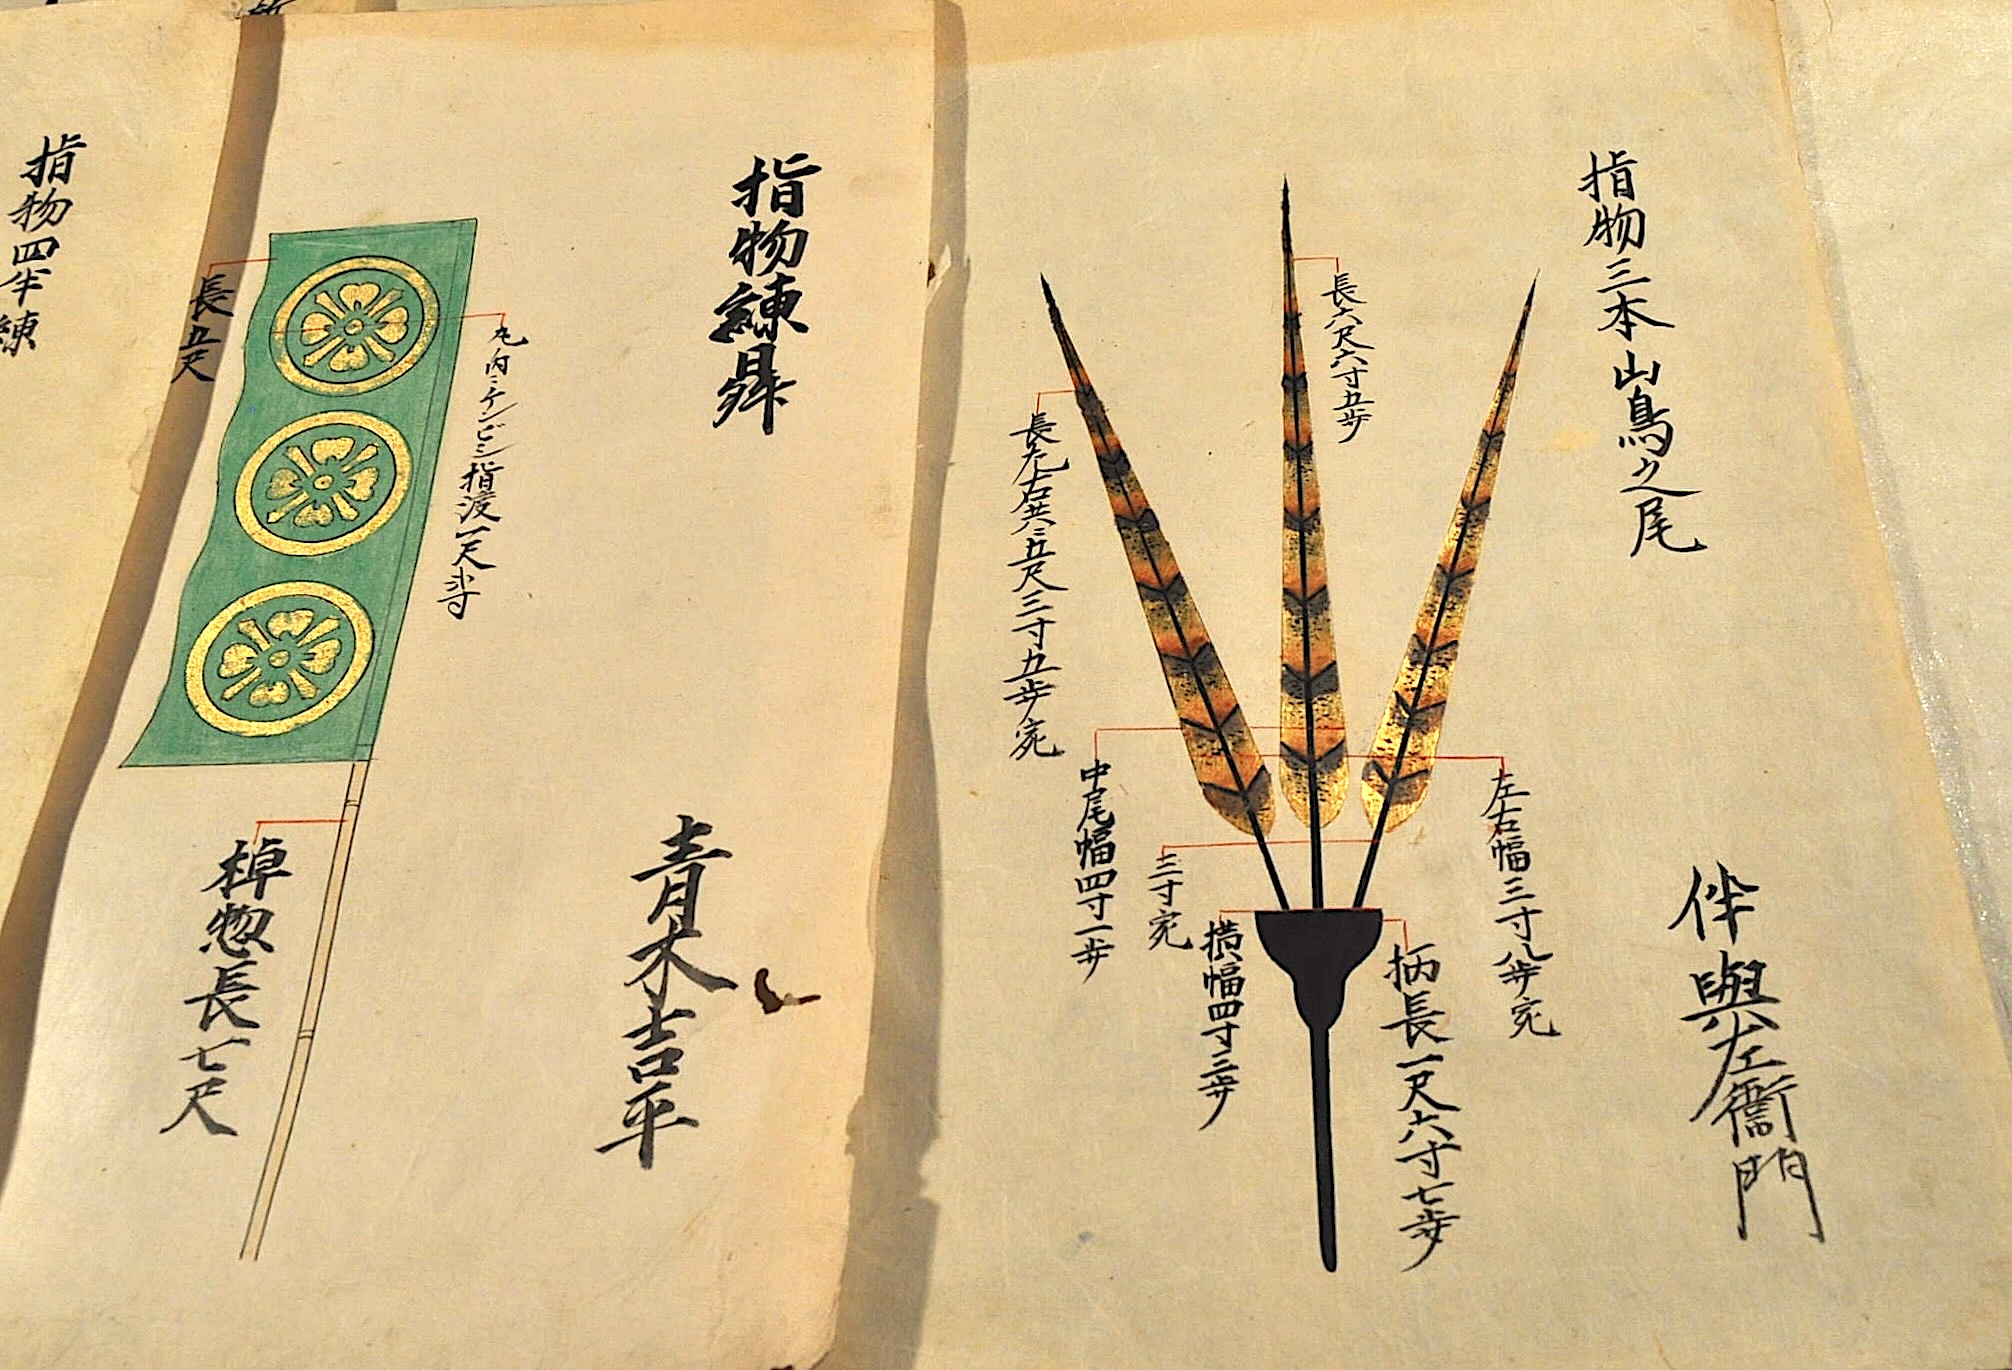 指物三本山鳥之尾
伴與左衛門
長六尺六寸五歩
左右幅三寸八歩宛
柄長一尺六寸七歩
横幅四寸三歩
三寸宛
中尾幅四寸一歩
長左右共ニ五尺三寸九歩宛
指物練
青木吉平
丸内ニケンビシ指渡一尺
長五尺
棹惣長七尺
指物四半練